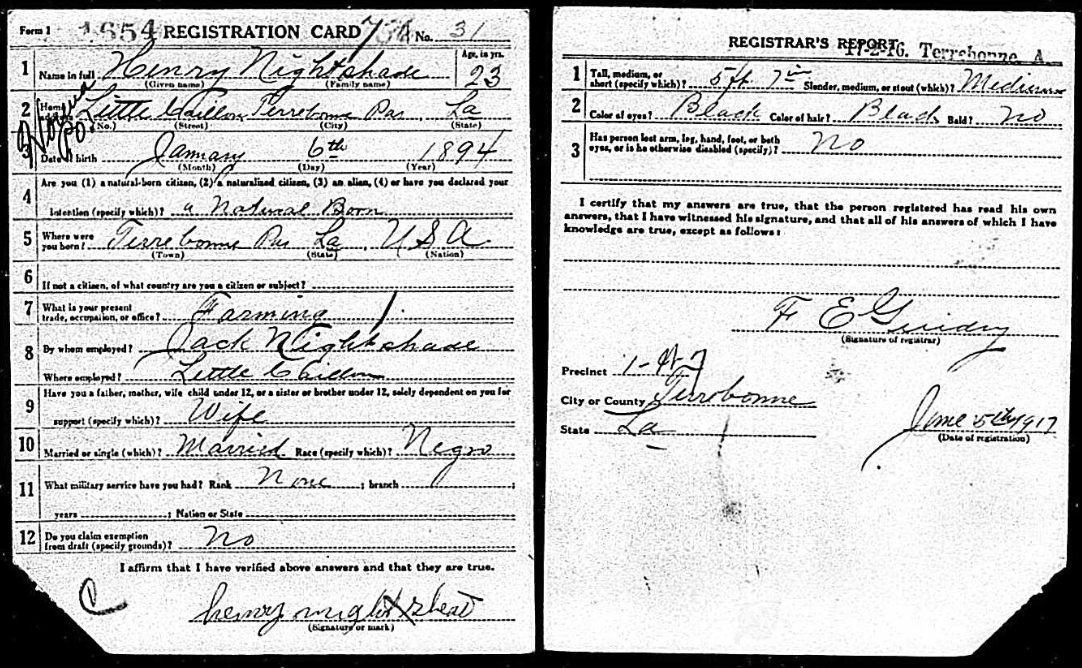 Form 1 1654 REGISTRATION CARD No. 31
1 Name in full Henry Nightshade Age, in yrs. 23
(Given name) (Family name)
2 Home address Little Caillou Terrebonne Par La
(No.) (Street) (City) (State)
P.O.
3 Date of birth January 6th 1894
(Month) (Day) (Year)
4 Are you (1) a natural-born citizen, (2) a naturalized citizen, (3) an alien, (4) or have you declared your
intention (specify which)? a Natural Born
5 Where were you born? Terrebonne Par La, USA
(Town) (State) (Nation)
6 If not a citizen, of what country are you a citizen or subject?
7 What is your present trade, occupation, or office? Farming
8 By whom employed? Jack Nightshade
Where employed? Little Caillou
9 Have you a father, mother, wife child under 12, or a sister or brother under 12, solely dependent on you for
support (specify which)? Wife
10 Married or single (which)? Married Race (specify which)? Negro
11 What military service have you had? Rank None ; branch ;
years ; Nation or State
12 Do you claim exemption from draft (specify grounds)? No
I affirm that I have verified above answers and that they are true.
C
henry
(Signature or mark)
REGISTRAR'S REPORT 17-2-16. Terrebonne, A
1 Tall, medium, or short (specify which)? 5 ft 7 in Slender, medium, or stout (which)? Medium
2 Color of eyes? Black Color of hair? Black Bald? No
3 Has person lost arm, leg, hand, foot, or both
eyes, or is he otherwise disabled (specify)? No
I certify that my answers are true, that the person registered has read his own
answers, that I have witnessed his signature, and that all of his answers of which I have
knowledge are true, except as follows:
F E Guidry
(Signature of registrar)
Precinct
City or County Terrebonne
State La
June 5th 1917
(Date of registration)